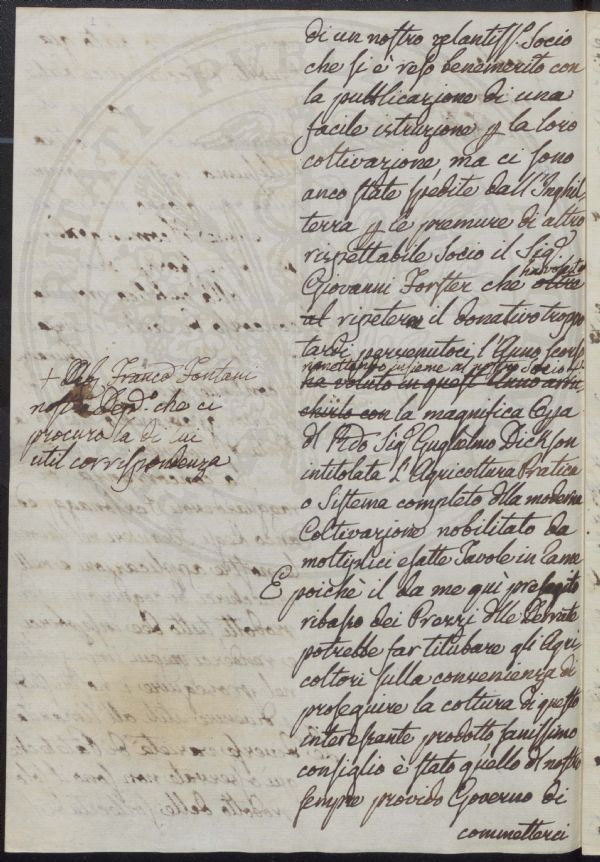 di un nostro zelantiss.º Socio
che si è reso benemerito con
la pubblicazione di una
facile istruzione p la loro
coltivazione, ma ci sono
anco state spedite dall'Inghil-
terra p le premure di altro
rispettabile Socio il Sig.r
ha voluto
Giovanni Forster che oltre
al ripetere il donativo troppo
tardi pervenutoci l'Anno scorso
rimettendo insieme al nostro Socio +
ha voluto in quest'Anno arric
chirlo con la magnifica Opa
dl Rdo Sig.r Guglielmo Dickson
intitolata L'Agricoltura Pratica
o Sistema completo dlla moderna
Coltivazione nobilitato da
moltiplici esatte Tavole in rame
E poichè il da me quì presagito
ribasso dei Prezzi dlle Derrate
potrebbe far titubare gli Agri
coltori sulla convenienza di
proseguire la coltura di questo
interessante prodotto sanissimo
consiglio è stato quello dl nostro
sempre provido Governo di
commetterci
+ Franco Fontani
nostro che ci
procurò la di lui
util corrispondenza